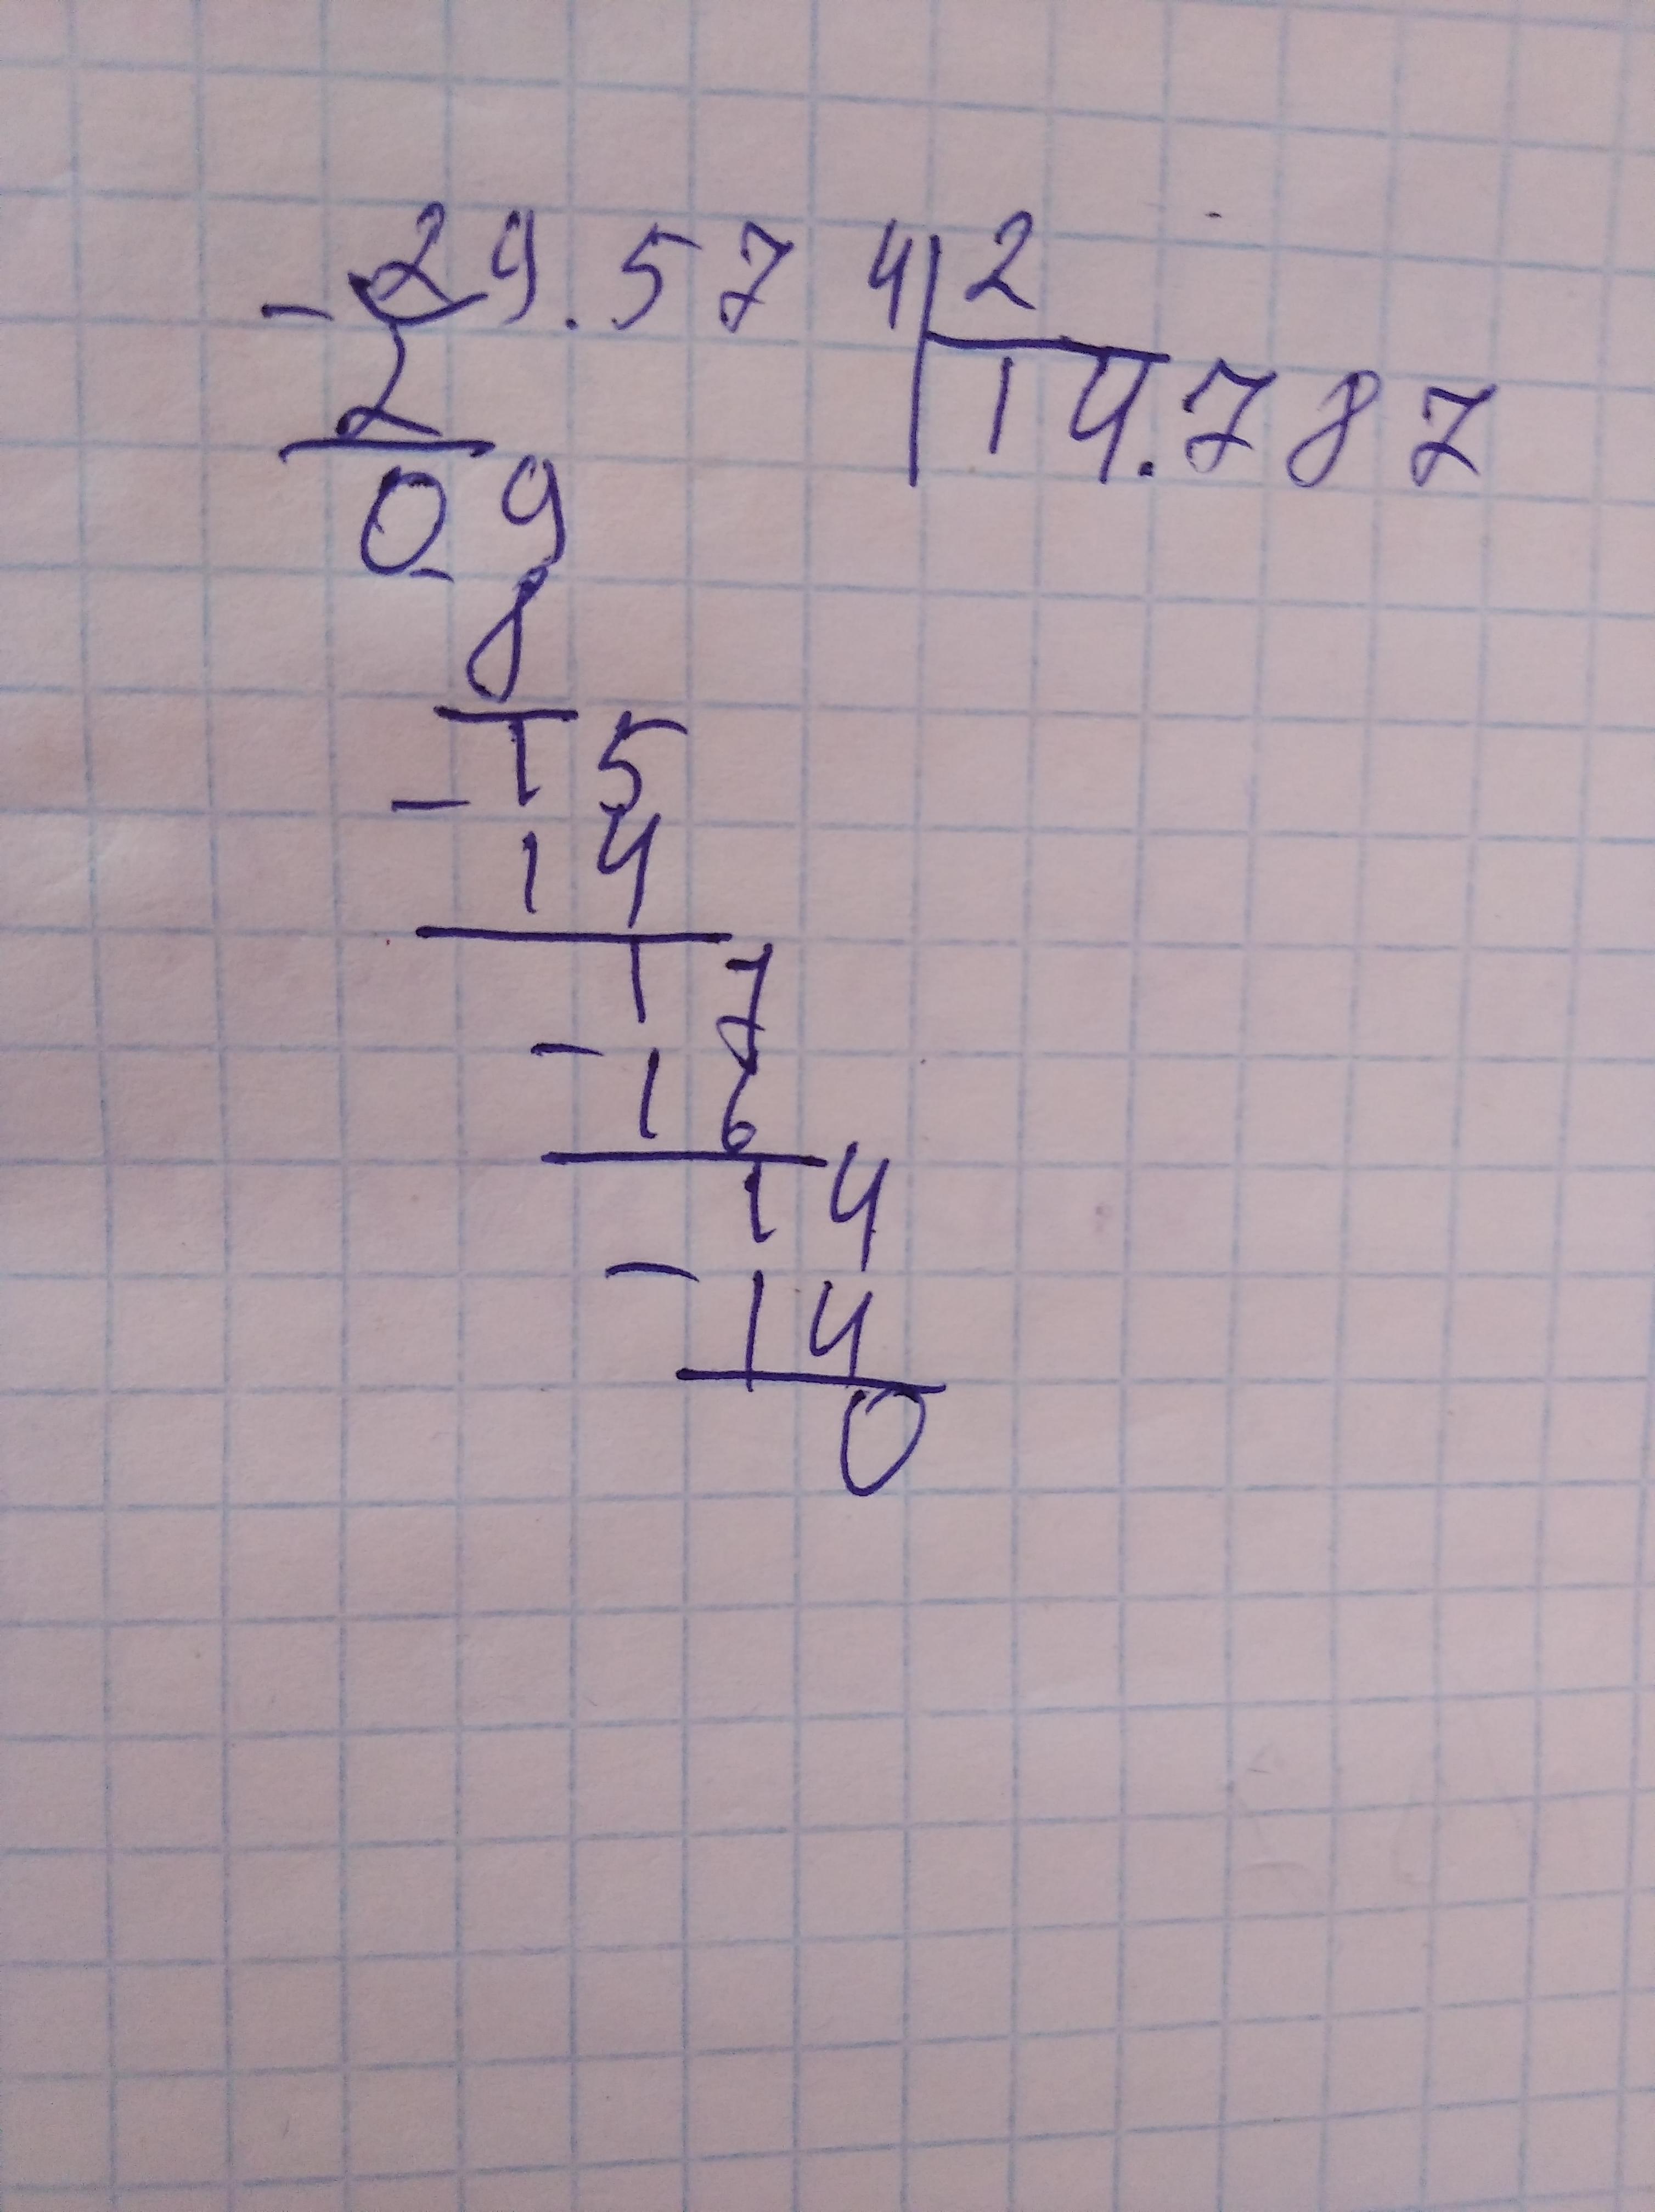 - 29.574 | 2
2 14.787
09
- 8
15
- 14
17
- 16
14
- 14
0